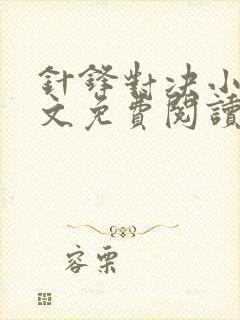 針鋒對決小
文免費閱讀
容栗